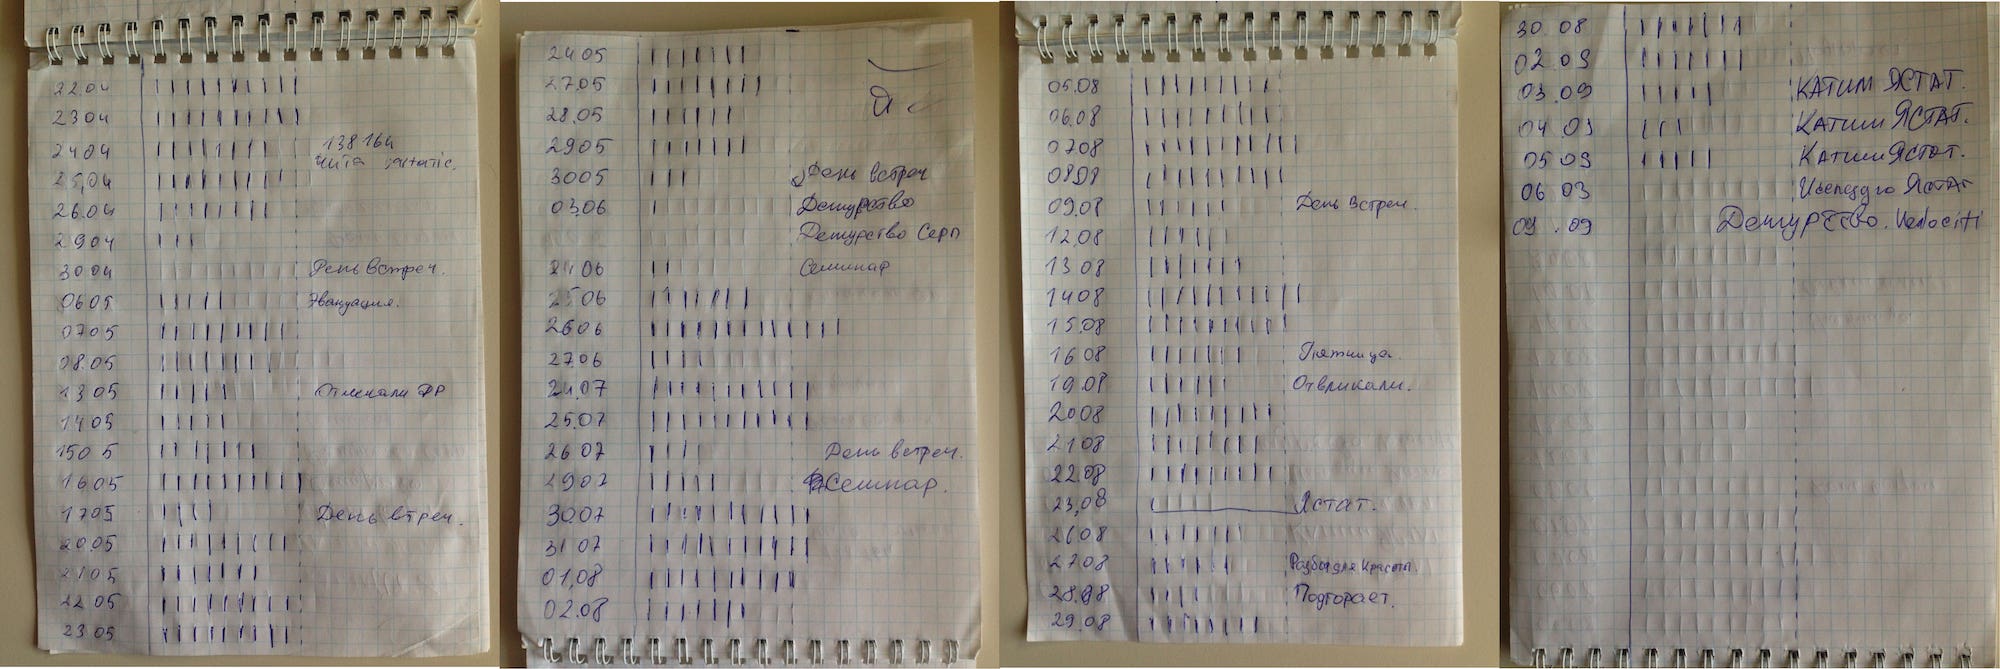 22.04
23 04
24 04 138 164
25.04
26.04
29 04
30 04 День встреч.
06 05 Эвакуация.
07 05
08.05
13 05
14 05
150 5
16.05
17 05 День втреч.
20.05
21 05
22 05
23 05
24 05
27.05
28.05
29 05
30 05 День встреч
03.06 Дежурство
Дежурство Серп
24 06 Семинар
25 06
26 06
27.06
24.07
25.07
26 07 День встреч.
29 07 Семинар.
30.07
31 07
01.08
02.08
05.08
06.08
07 08
08 08
09.08 День встреч.
12.08
13 08
14 08
15.08
16 08 Пятница.
19.08 Отвлекали.
20 08
21 08
22.08
23.08 ЯСтат.
26 08
27 08
28.08 Подгорает.
29.08
30 08
02.09
03.09 КАТИМ ЯСТАТ.
04 09 КАТИМ ЯСТАТ.
05 09 Катим Ястат.
06 09 ЯСТАТ
09.09 Дежурство. Velociti